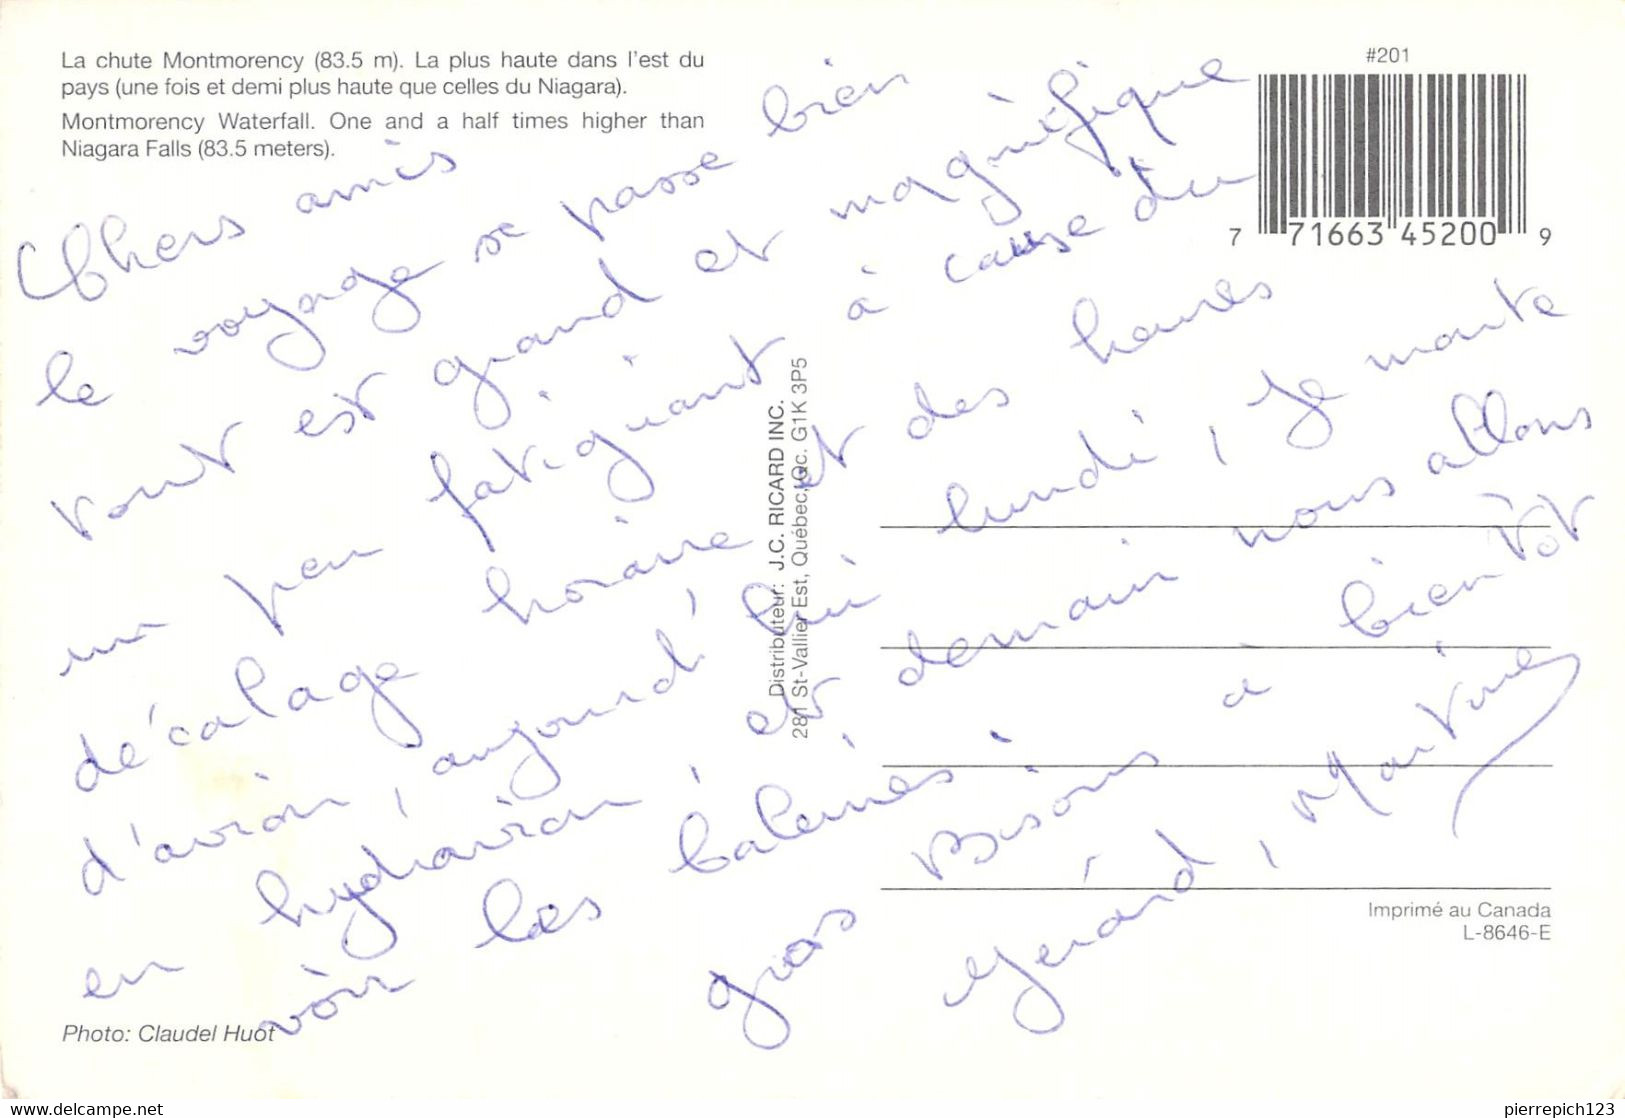 La chute Montmorency (83.5 m). La plus haute dans l'est du
pays (une fois et demi plus haute que celles du Niagara).
Montmorency Waterfall. One and a half times higher than
Niagara Falls (83.5 meters).
#201
7 71663 45200 9
Chers amis
le voyage se passe bien
tout est grand et magnifique
un peu fatiguant à cause du
décalage horaire et des heures
d'avion, aujourd'hui lundi, je monte
en hydravion, et demain nous allons
voir les baleines.
gros Bisous à bientôt
Gérard, Martine
Distributeur: J.C. RICARD INC.
281 St-Vallier Est, Québec, Qc. G1K 3P5
Imprimé au Canada
L-8646-E
Photo: Claudel Huot
delcampe.net
pierrepich123